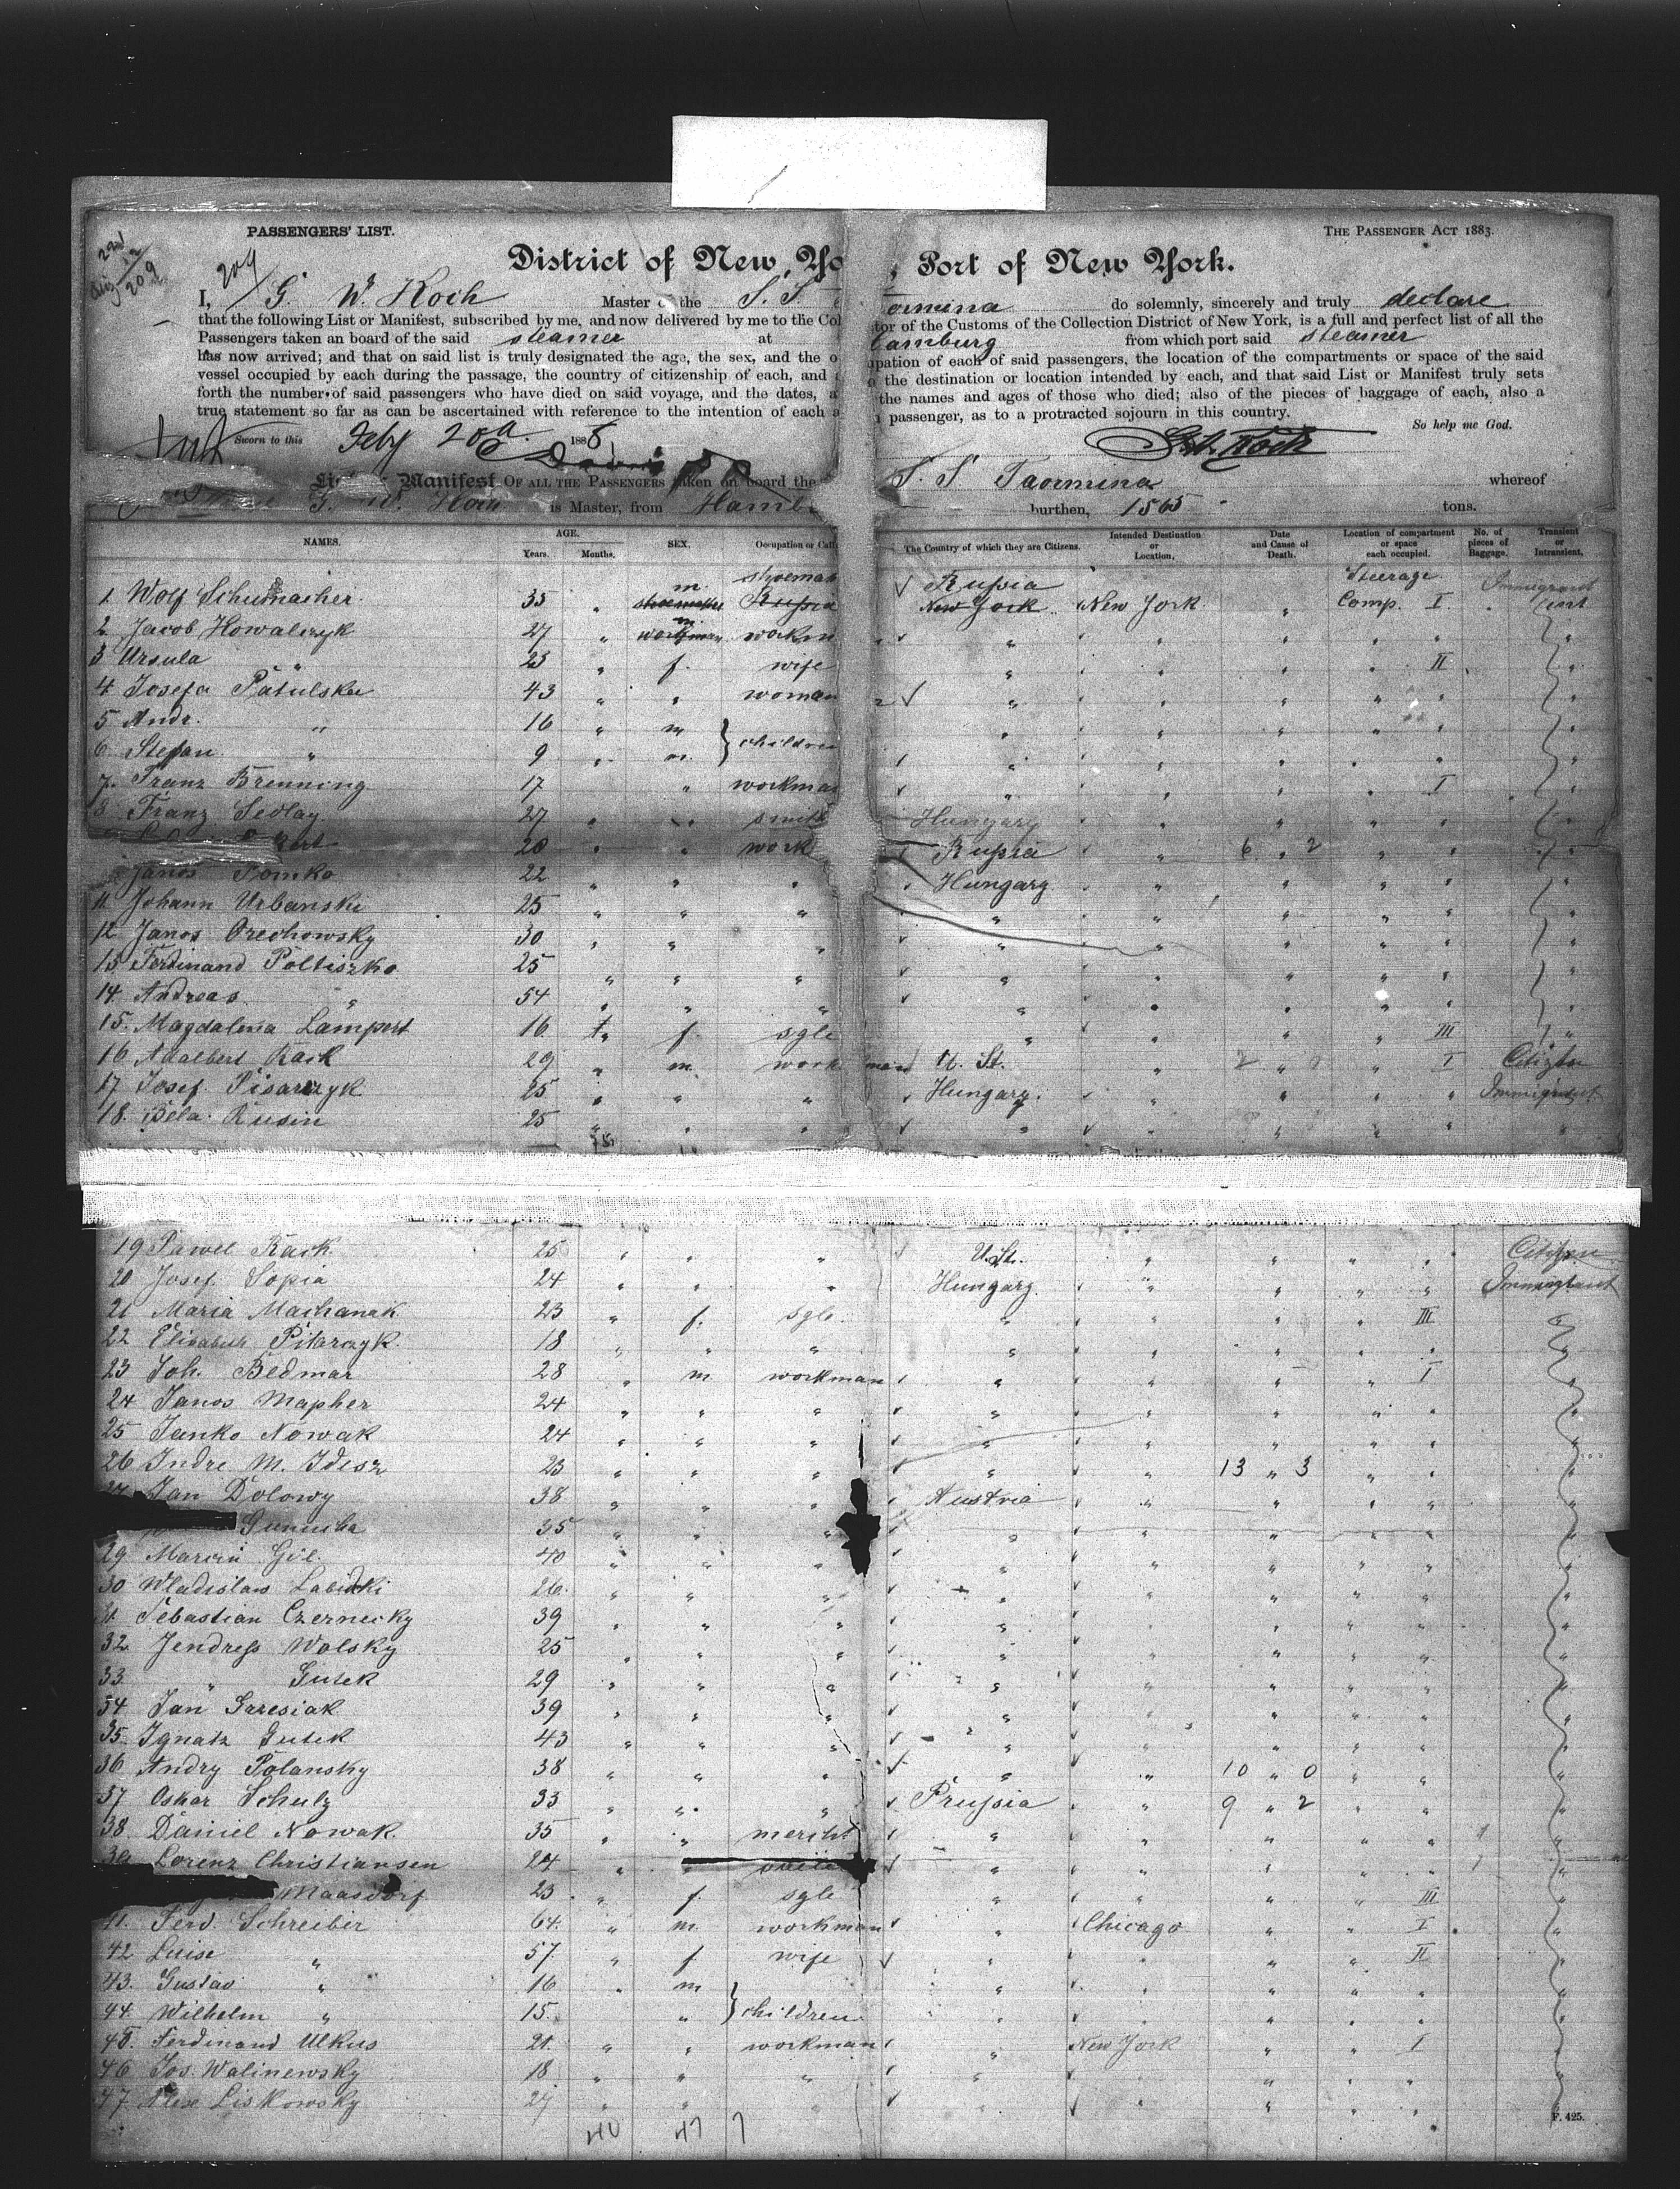 PASSENGERS' LIST.
THE PASSENGER ACT 1883.
209
District of New Yo , Port of New York.
I, G. W. Koch Master of the S. S. ormina do solemnly, sincerely and truly declare
that the following List or Manifest, subscribed by me, and now delivered by me to the Col tor of the Customs of the Collection District of New York, is a full and perfect list of all the
Passengers taken on board of the said steamer at amburg from which port said steamer
has now arrived; and that on said list is truly designated the age, the sex, and the o upation of each of said passengers, the location of the compartments or space of the said
vessel occupied by each during the passage, the country of citizenship of each, and the destination or location intended by each, and that said List or Manifest truly sets
forth the number of said passengers who have died on said voyage, and the dates, a the names and ages of those who died; also of the pieces of baggage of each, also a
true statement so far as can be ascertained with reference to the intention of each a passenger, as to a protracted sojourn in this country.
So help me God.
Sworn to this Feby 20 1888
Manifest OF ALL THE PASSENGERS taken on board the S. S. Taormina whereof
G. W. Koch is Master, from Hamb burthen, 1565 tons.
NAMES. AGE. Years. Months. SEX. Occupation or The Country of which they are Citizens. Intended Destination or Location. Date and Cause of Death. Location of compartment or space each occupied. No. of pieces of Baggage. Transient or Intransient.
1. Wolf Schumacher 35 " m. shoemak Russia New York " Steerage Comp. I Immigrant
2. Jacob Kowalczyk 27 " m. workm " " " " " "
3 Ursula " 23 " f. wife " " " " II "
4. Josefa Patulska 43 " " woman " " " " " "
5 Andr. " 16 " m } children " " " " " "
6 Stefan " 9 " m. " " " " " "
7. Franz Brenning 17 " workma " " " I "
8 Franz Sedlay 27 " " smith Hungary " " " " "
20 " " work Russia " 6 " 2 " " "
Janos Tomko 22 " " " Hungary " " " " "
11 Johann Urbanski 25 " " " " " " " " "
12 Janos Orechowsky 30 " " " " " " " " "
13 Ferdinand Poltiszko 25 " " " " " " " " "
14. Andreas " 54 " " " " " " " " "
15. Magdalena Lampert 16 " f. sgle " " " " III "
16 Adalbert Rack 29 " m. workman U. St. " " " I Citizen
17 Josef Pisarczyk 25 " " " Hungary. " " " " Immigrant
18. Bela Rusin 25 " " " " " " " " "
19 Pawel Rack 25 " " " U. St. " " " " Citizen
20 Josef Sopia 24 " " " Hungary " " " " Immigrant
21 Maria Machanak 23 " f. sgle. " " " " III "
22 Elisabeth Pitarczyk. 18 " " " " " " " " "
23 Joh. Bedmar 28 " m workman " " " " I "
24 Janos Mapher 24 " " " " " " " " "
25 Janko Nowak 24 " " " " " " " " "
26 Indre M. Idesz 23 " " " " " 13 " 3 " " "
27 Jan Dolowy 38 " " " Austria " " " " "
35 " " " " " " " "
29 Marcin Gil. 40 " " " " " " " "
30 Wladislaw Labudki 26. " " " " " " " " "
31. Sebastian Czernecky 39 " " " " " " " " "
32 Jendress Wolsky 25 " " " " " " " "
33 " Gutek 29 " " " " " " " " "
34 Jan Grzesiak 39 " " " " " " " " "
35. Ignatz Gutek 43 " " " " " " " "
36 Andry Polansky 38 " " " " " 10 " 0 " " "
37 Oskar Schulz 33 " " " Prussia " 9 " 2 " " "
38. Daniel Nowak. 35 " " mercht " " " " " "
39 Lorenz Christiansen 24 " " " " " " " "
Maasdorf 23 " f. sgle " " " " III "
41. Ferd. Schreiber 64. " m. workman " Chicago " " I "
42 Luise " 57. " f. wife " " " " II "
43. Gustav " 16 " m } children " " " " " "
44. Wilhelm " 15. " " " " " " "
45. Ferdinand Ulkus 21. " " workman " New York " " I "
46 Jos. Walinewsky 18 " " " " " " " "
47. Alex Liskowsky 27 " " " " " " " "
40 47 7
F. 425.